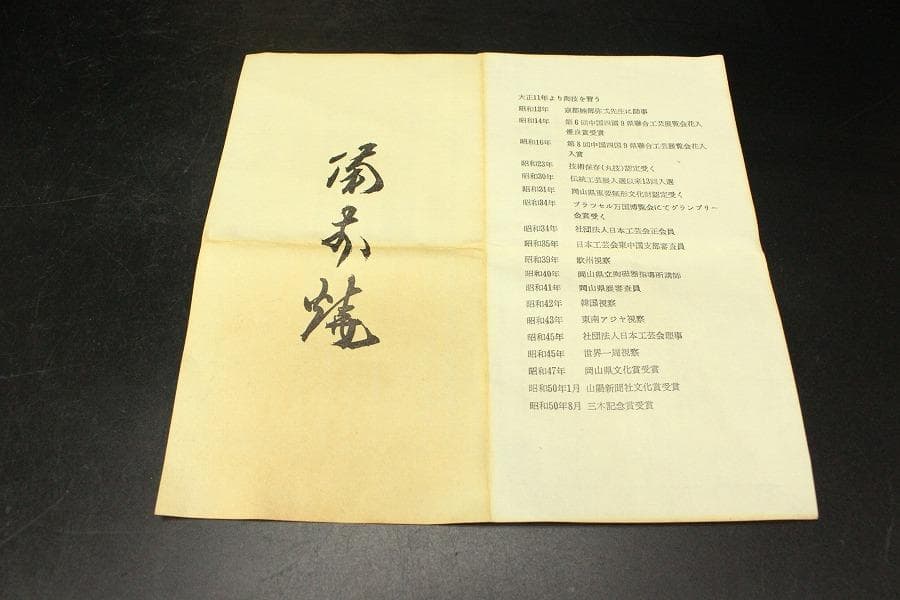 備前焼
大正11年より陶技を習う
昭和13年 京都楠部弥弌先生に師事
昭和14年 第6回中国四国9県聯合工芸展覧会花入
優良賞受賞
昭和16年 第8回中国四国9県聯合工芸展覧会花入
入賞
昭和23年 技術保存(丸技)認定受く
昭和30年 伝統工芸展入選以来13回入選
昭和31年 岡山県重要無形文化財認定受く
昭和34年 ブラツセル万国博覧会にてグランプリー
金賞受く
昭和34年 社団法人日本工芸会正会員
昭和35年 日本工芸会東中国支部審査員
昭和39年 欧州視察
昭和40年 岡山県立陶磁器指導所講師
昭和41年 岡山県展審査員
昭和42年 韓国視察
昭和43年 東南アジヤ視察
昭和45年 社団法人日本工芸会理事
昭和45年 世界一周視察
昭和47年 岡山県文化賞受賞
昭和50年1月 山陽新聞社文化賞受賞
昭和50年8月 三木記念賞受賞